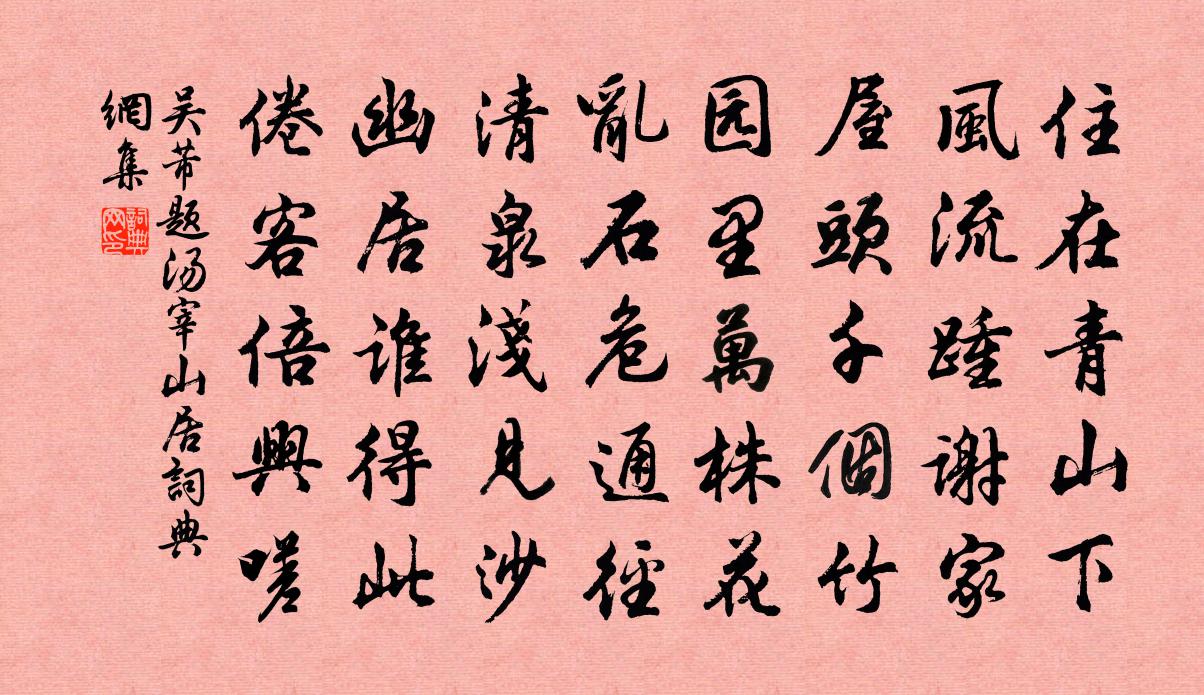 住在青山下
風流踵謝家
屋頭千個竹
园里萬株花
亂石危通徑
清泉淺見沙
幽居誰得此
倦客倍興嗟
吴芾题汤宰山居詞典
網集
詞典
网印